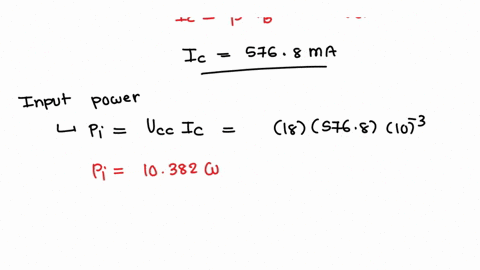 Ic = 576.8 mA
Input power
Pi = Vcc Ic = (18) (576.8) (10)⁻³
Pi = 10.382 W